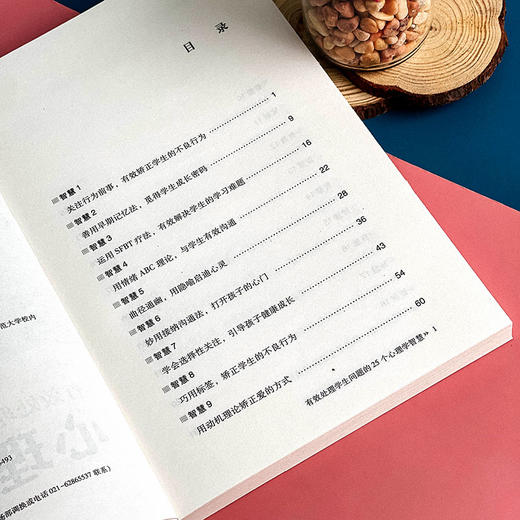 目 录
智慧 1
关注行为前事，有效矫正学生的不良行为 …… 1
智慧 2
善用早期记忆法，觅得学生成长密码 …… 9
智慧 3
运用 SFBT 疗法，有效解决学生的学习难题 …… 16
智慧 4
用情绪 ABC 理论，与学生有效沟通 …… 22
智慧 5
曲径通幽，用隐喻启迪心灵 …… 28
智慧 6
妙用接纳沟通法，打开孩子的心门 …… 36
智慧 7
学会选择性关注，引导孩子健康成长 …… 43
智慧 8
巧用标签，矫正学生的不良行为 …… 54
智慧 9
用动机理论矫正爱的方式 …… 60
有效处理学生问题的 25 个心理学智慧》 1
范大学校内
心理
493
部调换或电话 021-62865537 联系）